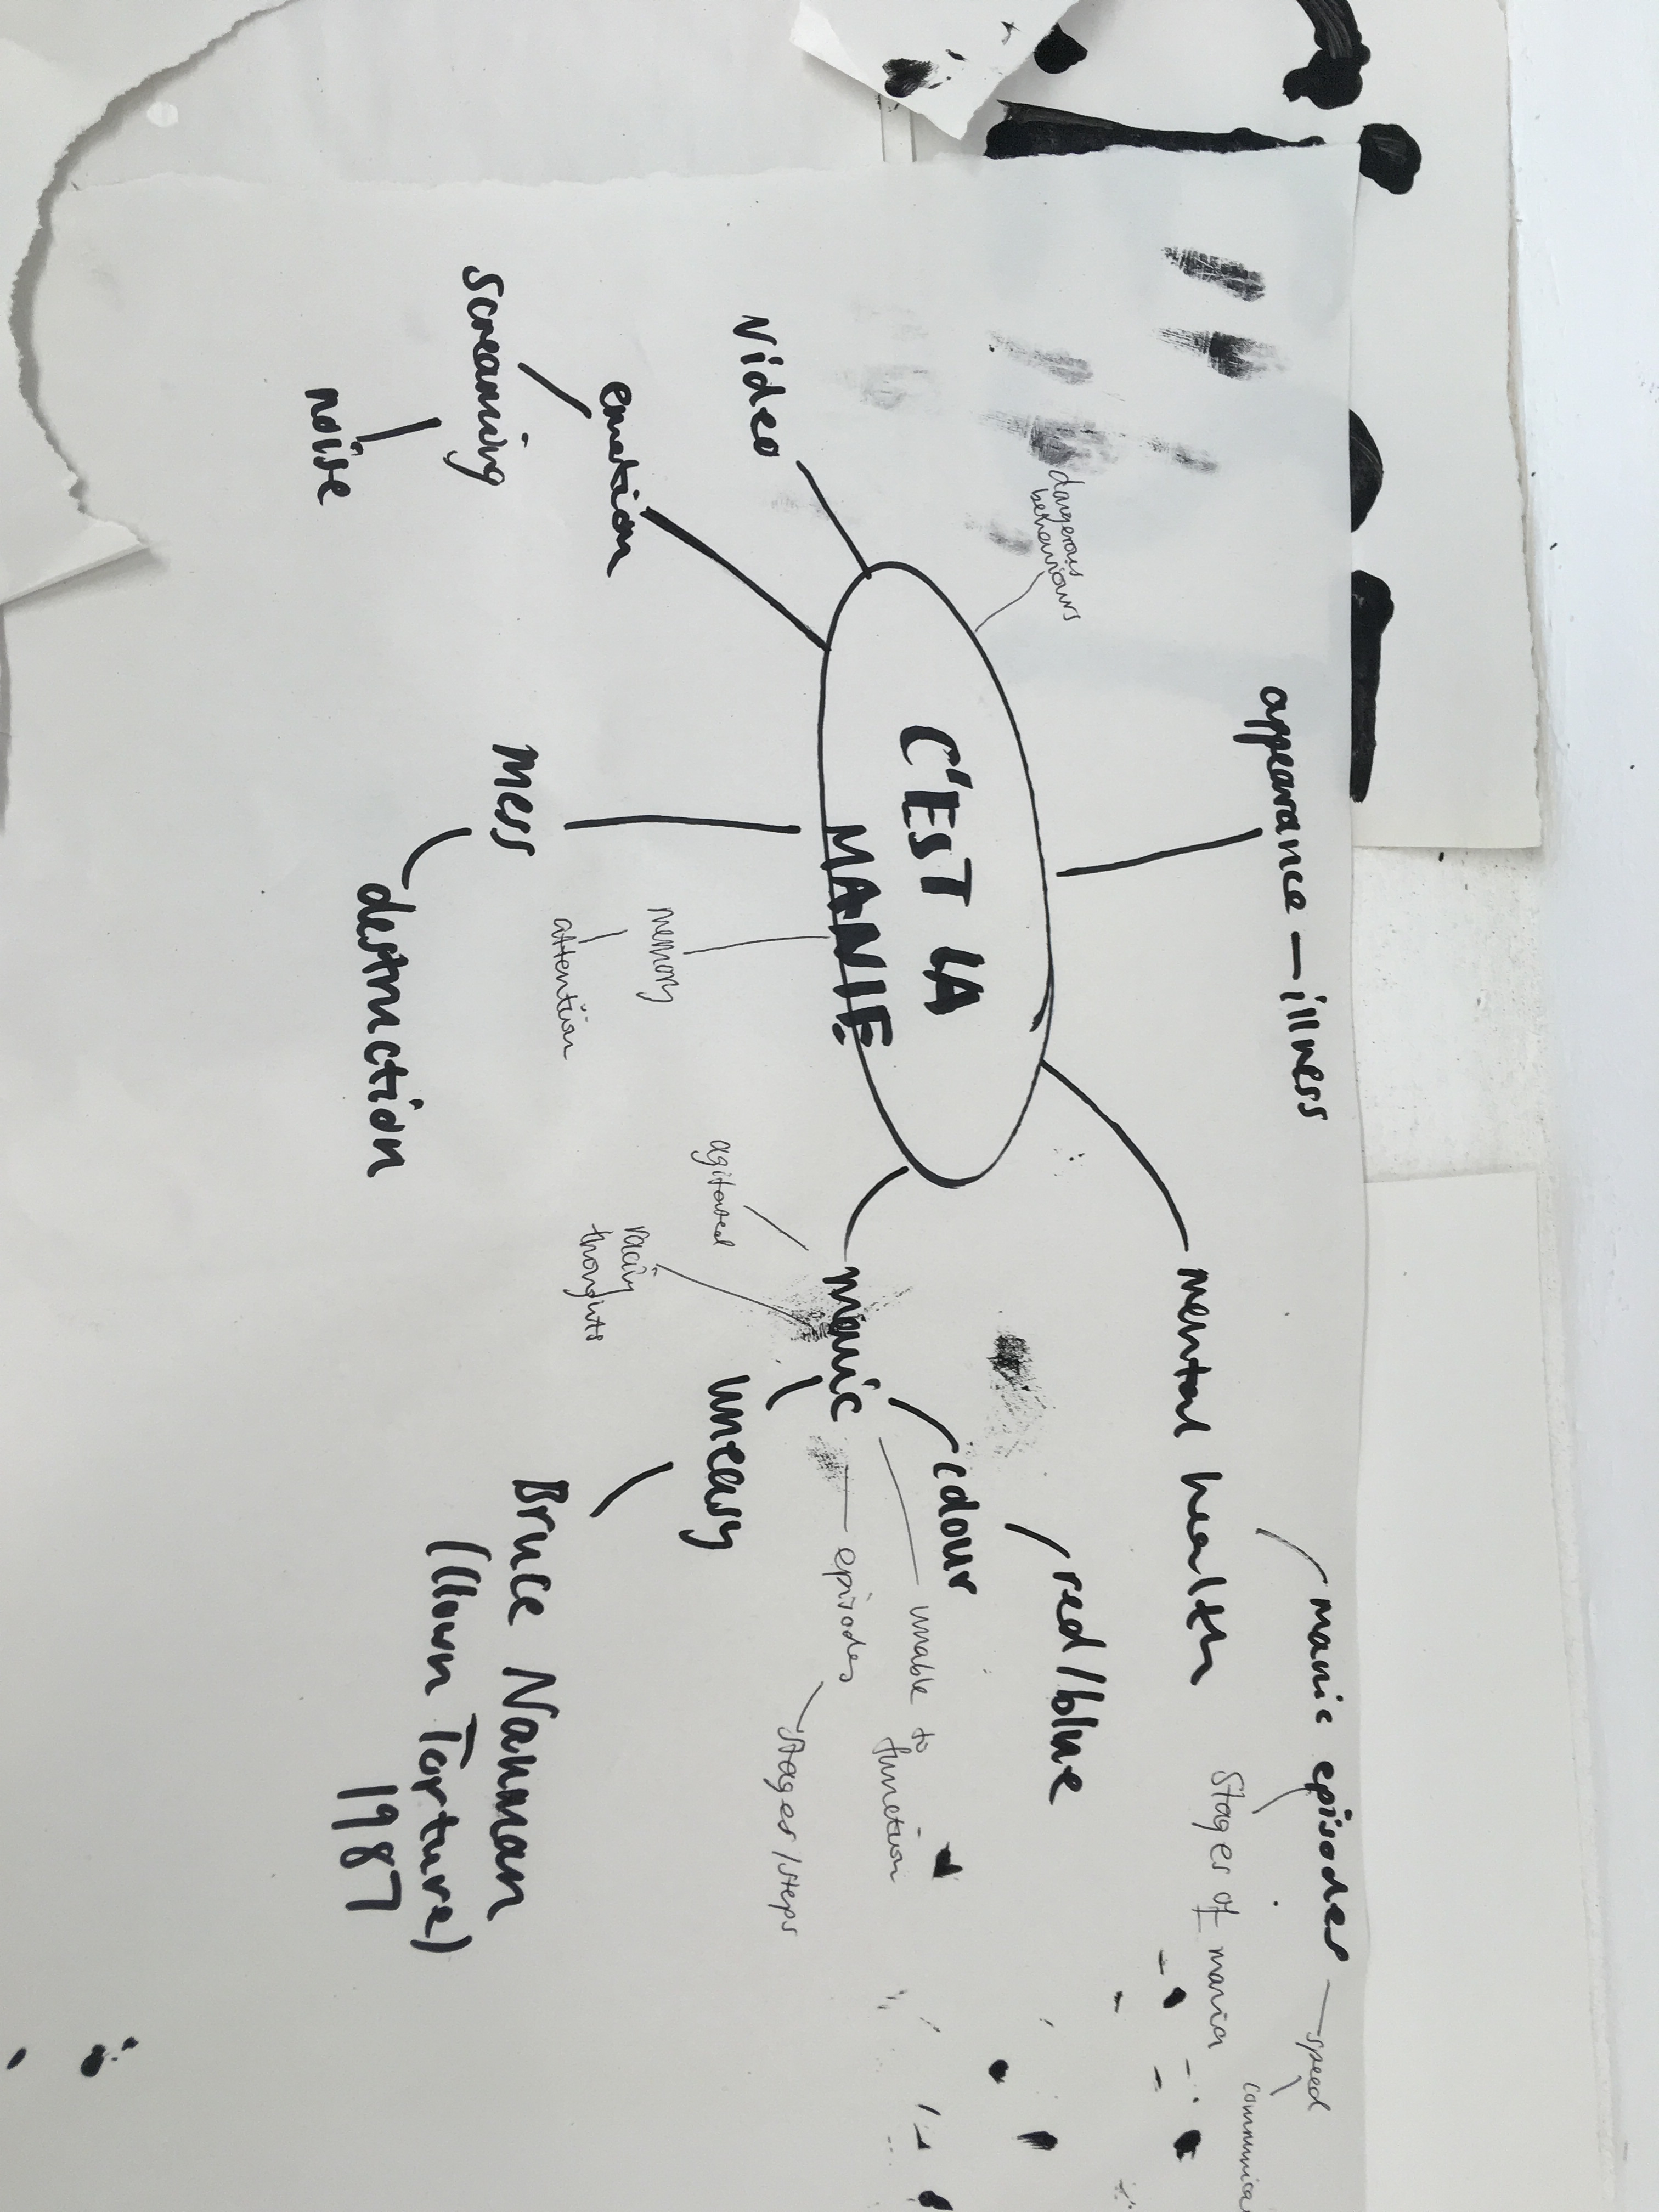 C'EST LA
MANIE
appearance — illness
mental health
manic episodes
speed
stages of mania
manic
colour
red/blue
unable to
function
episodes
stages/steps
uneasy
Bruce Nauman
(Clown Torture)
1987
agitated
racing
thoughts
memory
attention
mess
destruction
emotion
screaming
noise
Video
dangerous
behaviours